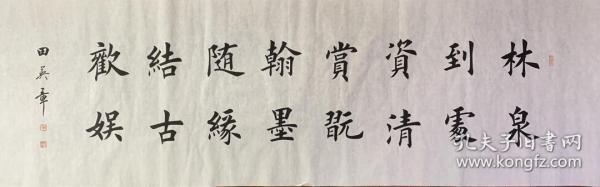 林泉
到處
資清
賞翫
翰墨
随緣
結古
歡娱
田英章
孔夫子旧书网
www.kongfz.com